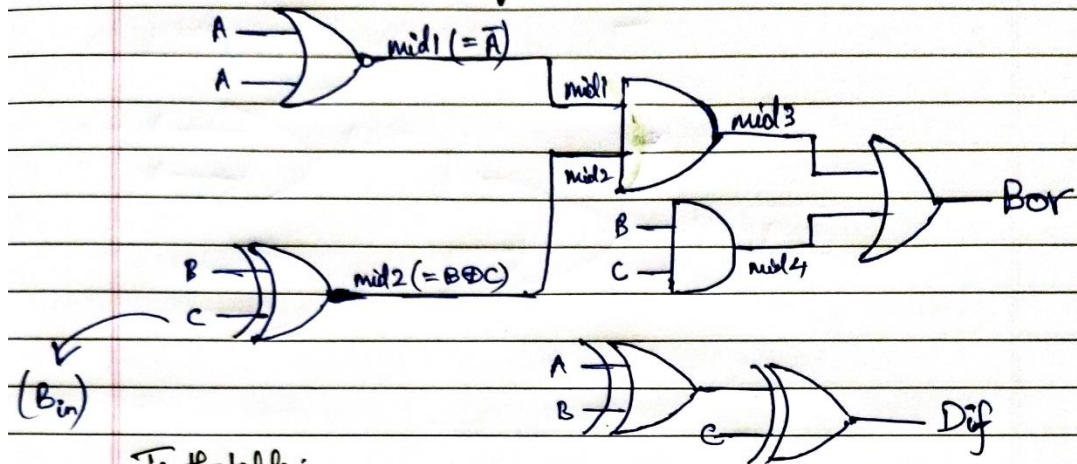 A
A
mid1 (= Ā)
mid1
mid2
mid3
B
C
mid4
Bor
B
C
mid2 (= B⊕C)
(Bin)
A
B
C
Dif